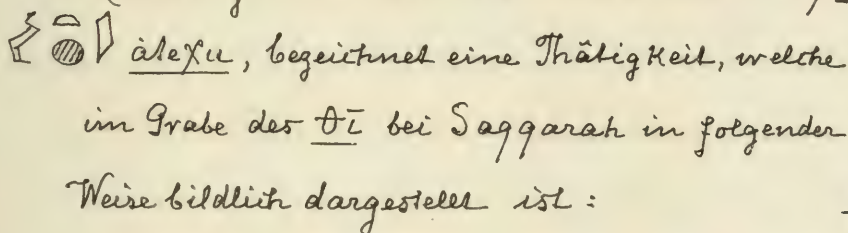 àteχu, bezeichnet eine Thätigkeit, welche
im Grabe des θī bei Saqqarah in folgender
Weise bildlich dargestellt ist: